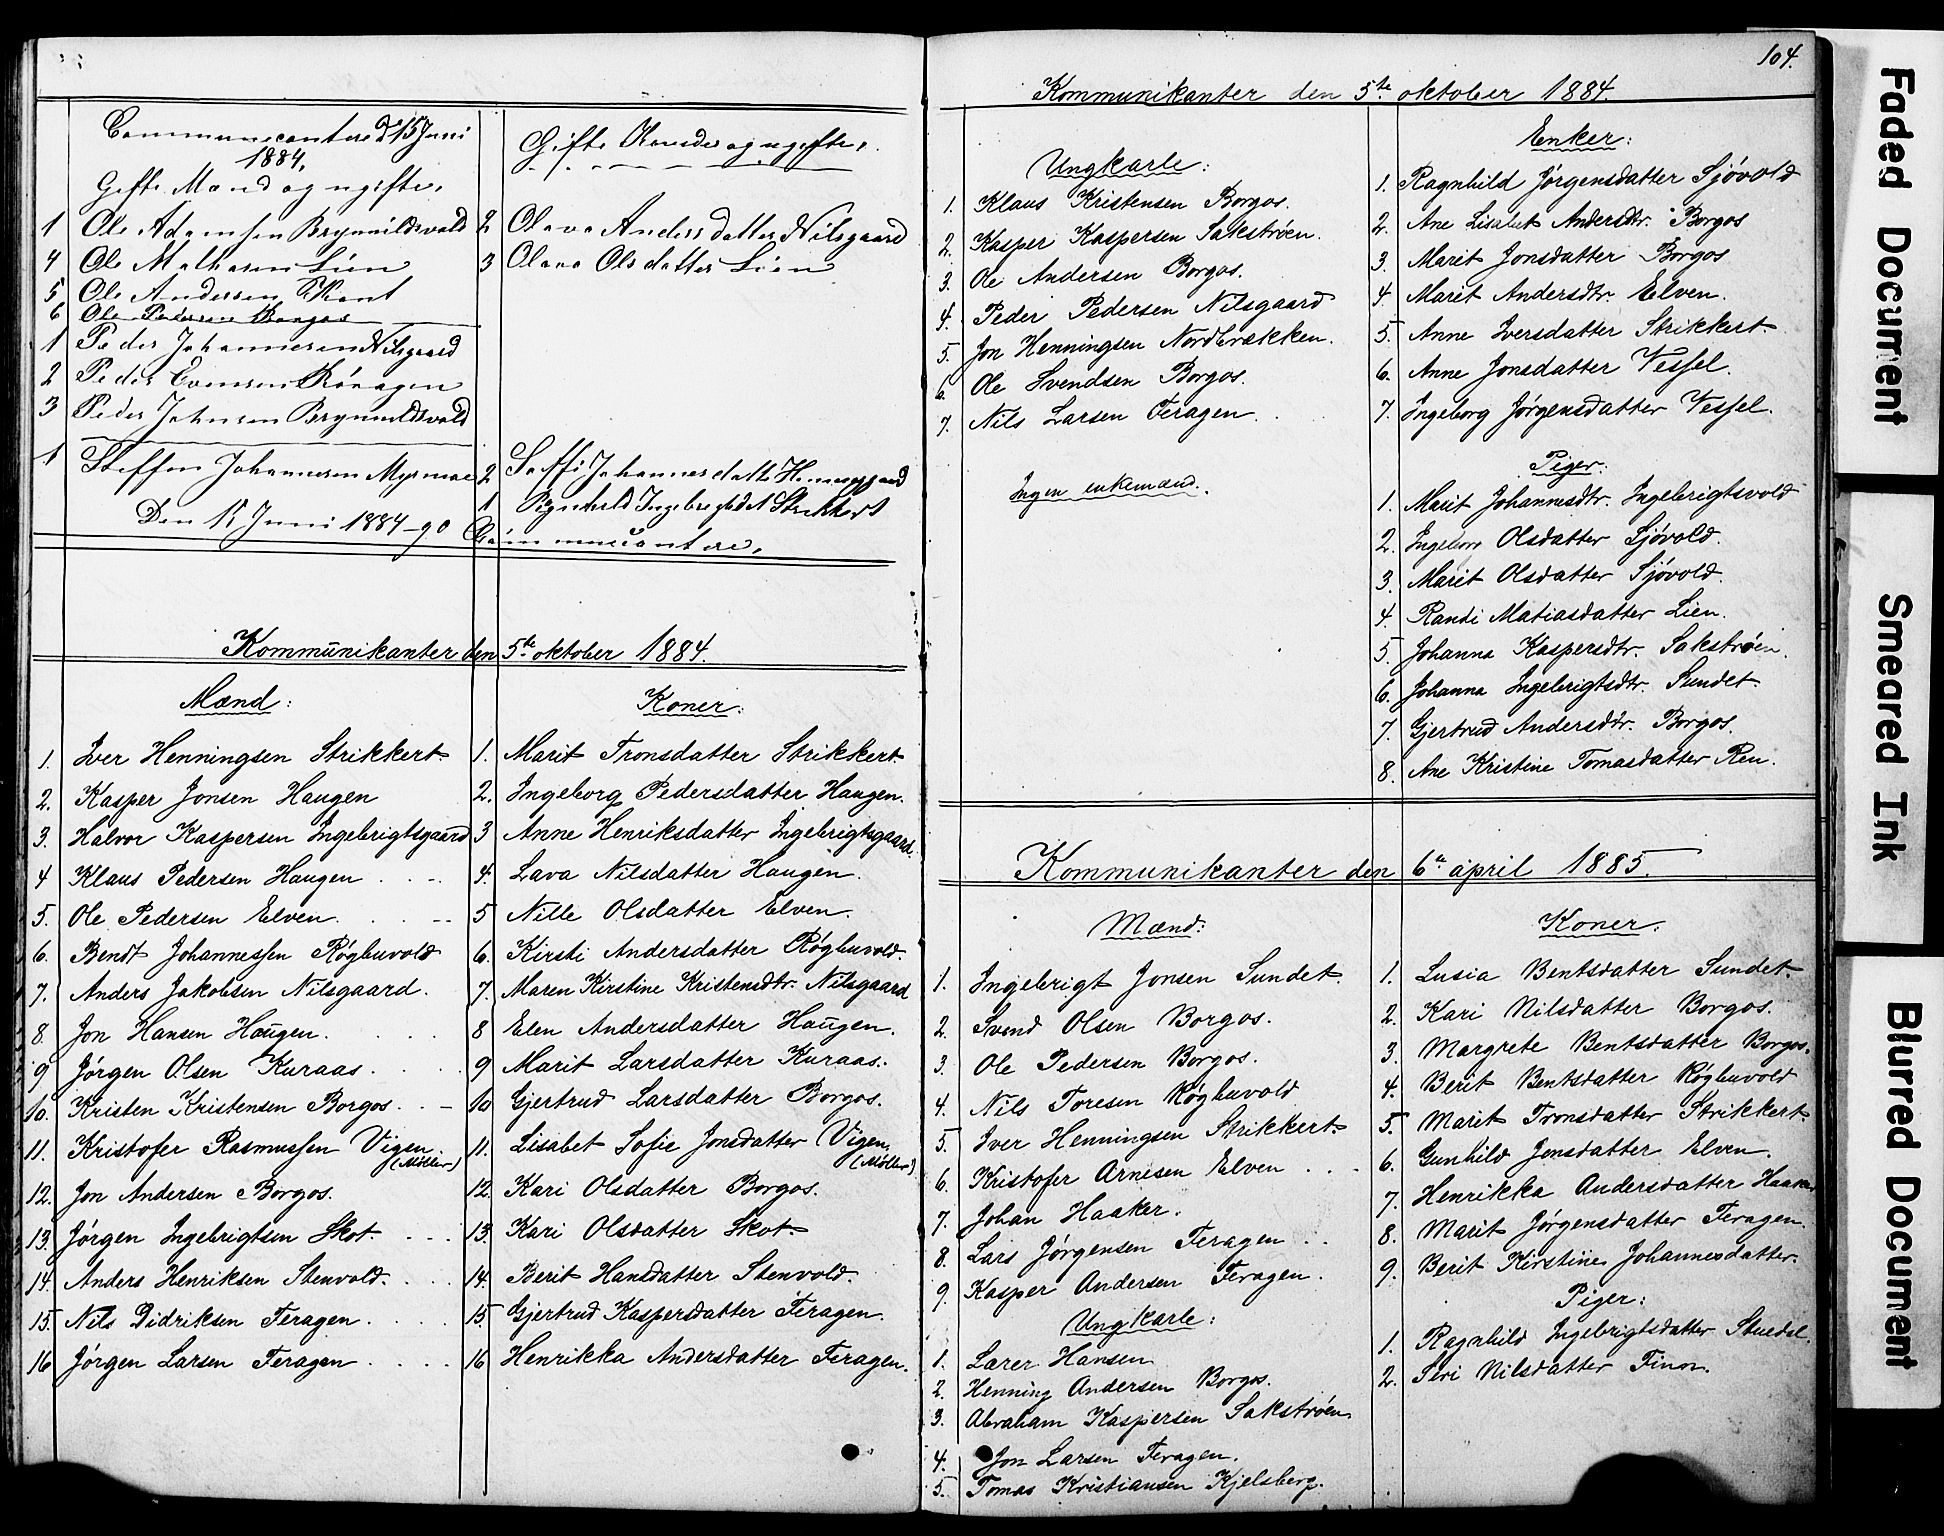 Communicantere d 15 Juni
1884,
Gifte Mænd og ugifte,
1 Ole Adamsen Brynnildsvold
4 Ole Mathesen Lien
5 Ole Andersen
6 Ole Pedersen Borgos
1 Peder Johannesen Nilsgaard
2 Peder Evensen
3 Peder Johnsen Brynnildsvold
1 Steffen Johannesen
Gifte Kvinder og ugifte,
2 Olava Andersdatter Nilsgaard
3 Olava Olsdatter Lien
2 Johannesdatter
1 Strikkert
Den 15 Juni 1884 - 90 Communicantere,
Kommunikanter den 5te oktober 1884.
Mænd:
1. Iver Henningsen Strikkert.
2. Kasper Jonsen Haugen
3. Halvor Kaspersen Ingebrigtsgaard
4 Klaus Pedersen Haugen
5. Ole Pedersen Elven.
6. Bendt Johannessen Røgbuvold
7. Anders Jakobsen Nilsgaard.
8. Jon Hansen Haugen.
9 Jørgen Olsen Kuraas.
10. Kristen Kristensen Borgos.
11. Kristofer Rasmussen Vigen
(Møller)
12. Jon Andersen Borgos.
13. Jørgen Ingebrigtsen Skot.
14. Anders Henriksen Stenvold.
15. Nils Didriksen Feragen.
16 Jørgen Larsen Feragen
Koner:
1. Marit Tronsdatter Strikkert
2. Ingeborg Pedersdatter Haugen.
3 Anne Henriksdatter Ingebrigtsgaard.
4. Lava Nilsdatter Haugen.
5 Nille Olsdatter Elven.
6. Kirsti Andersdatter Røgbuvold.
7. Maren Kirstine Kristensdtr. Nilsgaard
8 Elen Andersdatter Haugen.
9 Marit Larsdatter Kuraas.
10 Gjertrud Larsdatter Borgos.
11. Lisabet Sofie Jonsdatter Vigen.
(Møller)
12. Kari Olsdatter Borgos.
13. Kari Olsdatter Skot.
14. Berit Hansdatter Stenvold.
15. Gjertrud Kaspersdatter Feragen.
16 Henrikka Andersdatter Feragen.
104.
Kommunikanter den 5te oktober 1884.
Ungkarle:
1. Klaus Kristensen Borgos.
2. Kasper Kaspersen Sakstrøen.
3. Ole Andersen Borgos.
4. Peder Pedersen Nilsgaard
5. Jon Henningsen Nordbrækken.
6. Ole Svendsen Borgos.
7. Nils Larsen Feragen
Ingen enkemænd.
Enker:
1. Ragnhild Jørgensdatter Sjøvold
2. Ane Lisabet Andersdtr. Borgos
3. Marit Jonsdatter Borgos
4. Marit Andersdtr. Elven.
5. Anne Iversdatter Strikkert.
6. Anne Jonsdatter Vessel.
7. Ingeborg Jørgensdatter Vessel.
Piger:
1. Marit Johannesdtr. Ingebrigtsvold
2. Ingeborg Olsdatter Sjøvold.
3. Marit Olsdatter Sjøvold.
4. Randi Matiasdatter Lien.
5. Johanna Kaspersdtr. Sakstrøen.
6. Johanna Ingebrigtsdtr. Sundet.
7. Gjertrud Andersdtr. Borgos.
8. Ane Kristine Tomasdatter Ren.
Kommunikanter den 6te april 1885.
Mænd:
1. Ingebrigt Jonsen Sundet.
2. Svend Olsen Borgos.
3. Ole Pedersen Borgos.
4. Nils Toresen Røgbuvold
5. Iver Henningsen Strikkert.
6. Kristofer Arnesen Elven
7. Johan Haaker.
8. Lars Jørgensen Feragen
9. Kasper Andersen Feragen.
Ungkarle:
1. Lærer Hansen
2. Henning Andersen Borgos.
3. Abraham Kaspersen Sakstrøen
4. Jon Larsen Feragen.
5. Tomas Kristiansen Kjelsberg.
Koner.
1. Lusia Bentsdatter Sundet.
2. Kari Nilsdatter Borgos.
3. Margrete Bentsdatter Borgos.
4. Berit Bentsdatter Røgbuvold
5. Marit Tronsdatter Strikkert.
6. Gunhild Jonsdatter Elven.
7. Henrikka Andersdatter Haaker
8. Marit Jørgensdatter Feragen.
9. Berit Kirstine Johannesdatter.
Piger:
1. Ragnhild Ingebrigtsdatter Stuedal.
2. Siri Nilsdatter
Faded Document
Smeared Ink
Blurred Document